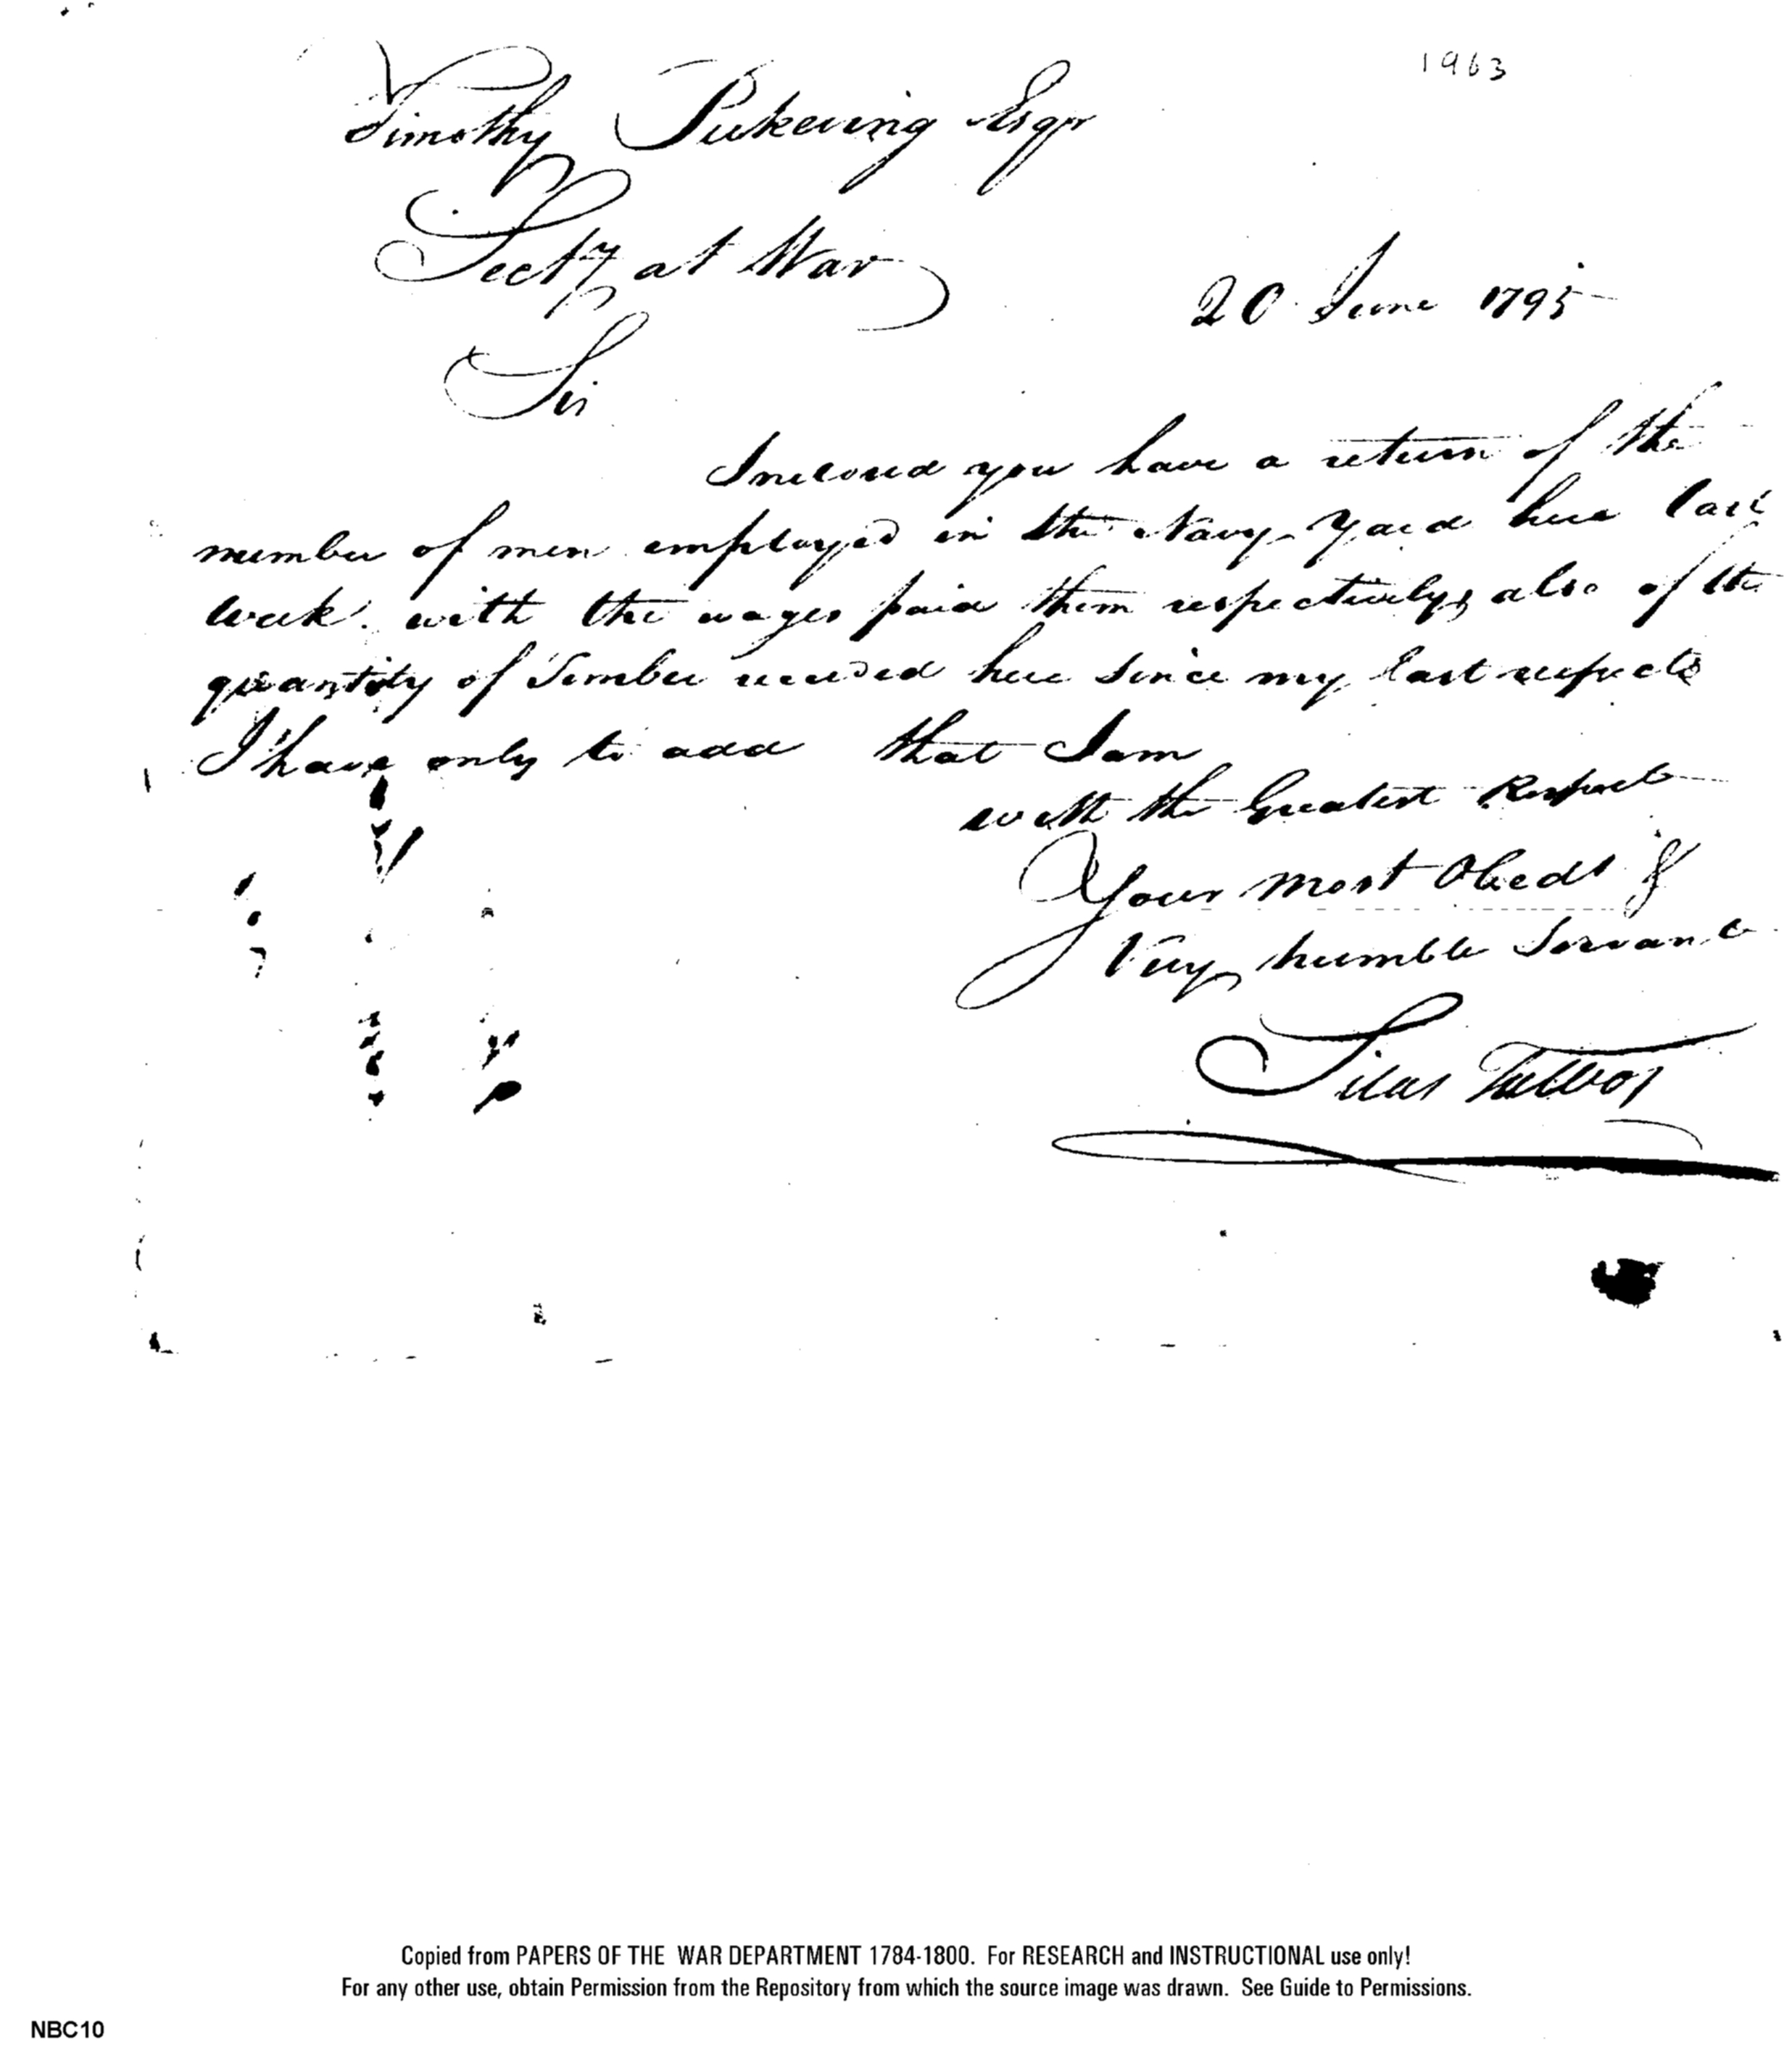 1963
Timothy Pickering Esqr
Secty at War
20 June 1795
Sir
Inclosed you have a return of the
number of men employed in the Navy Yard here last
week with the wages paid them respectively, also of the
quantity of Timber receved here since my last respects
I have only to add that I am
with the Greatest Respect
Your most Obedt &
Very humble Servant
Silas Talbot
Copied from PAPERS OF THE WAR DEPARTMENT 1784-1800. For RESEARCH and INSTRUCTIONAL use only!
For any other use, obtain Permission from the Repository from which the source image was drawn. See Guide to Permissions.
NBC10